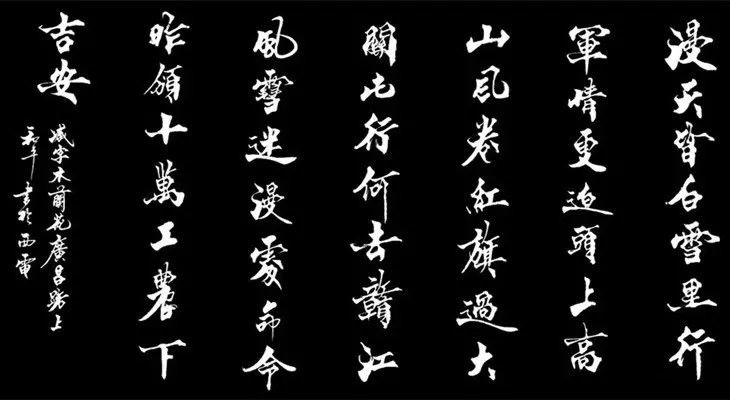 漫天皆白雪里行
軍情更迫頭上高
山风卷紅旗過大
關此行何去贛江
風雪迷漫處命令
昨頒十萬工農下
吉安
減字木蘭花廣昌路上
和平書於西電